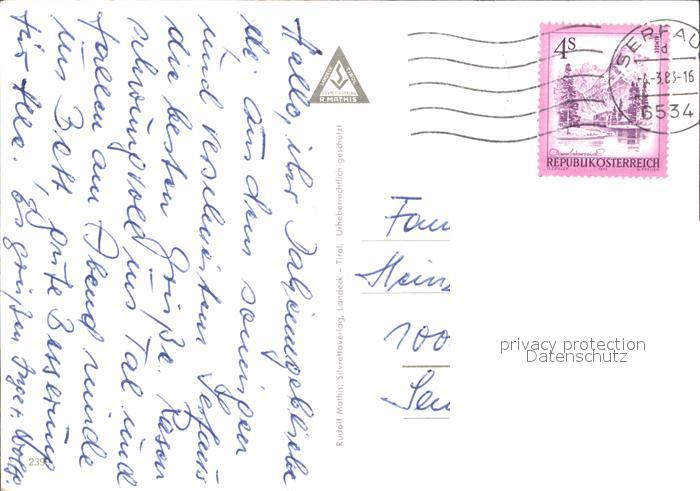 Hallo, ihr Daheimgebliebene
die aus dem sonnigen
und verschneiten Serfaus
die besten Grüße. Rasen
schwungvoll ins Tal und
fallen am Abend müde
ins Bett, gute Besserung
für Alle. Es grüßen Inge + Wolfg.
239
R. MATHIS
Rudolf Mathis, Silvrettaverlag, Landeck - Tirol. Urheberrechtlich geschützt
4S
REPUBLIK ÖSTERREICH
SERFAU
-3.83-16
6534
Fam
Heinz
100
privacy protection
Datenschutz